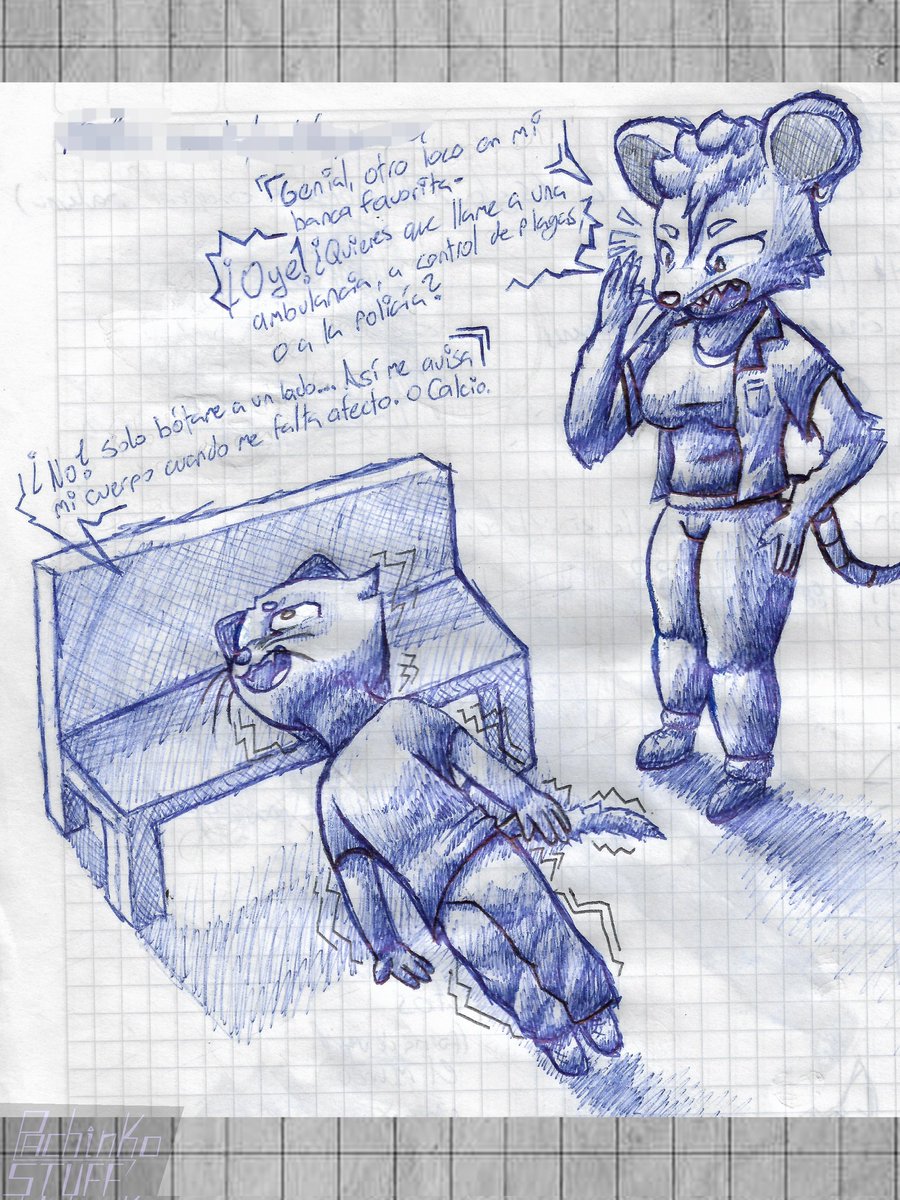 Genial, otro loco en mi
banca favorita-
¡Oye! ¿Quieres que llame a una
ambulancia, a control de plagas,
o a la policía?
¡¡No! solo bótame a un lado... Así me avisa
mi cuerpo cuando me falta afecto. O Calcio.
PachinKo
STUFF